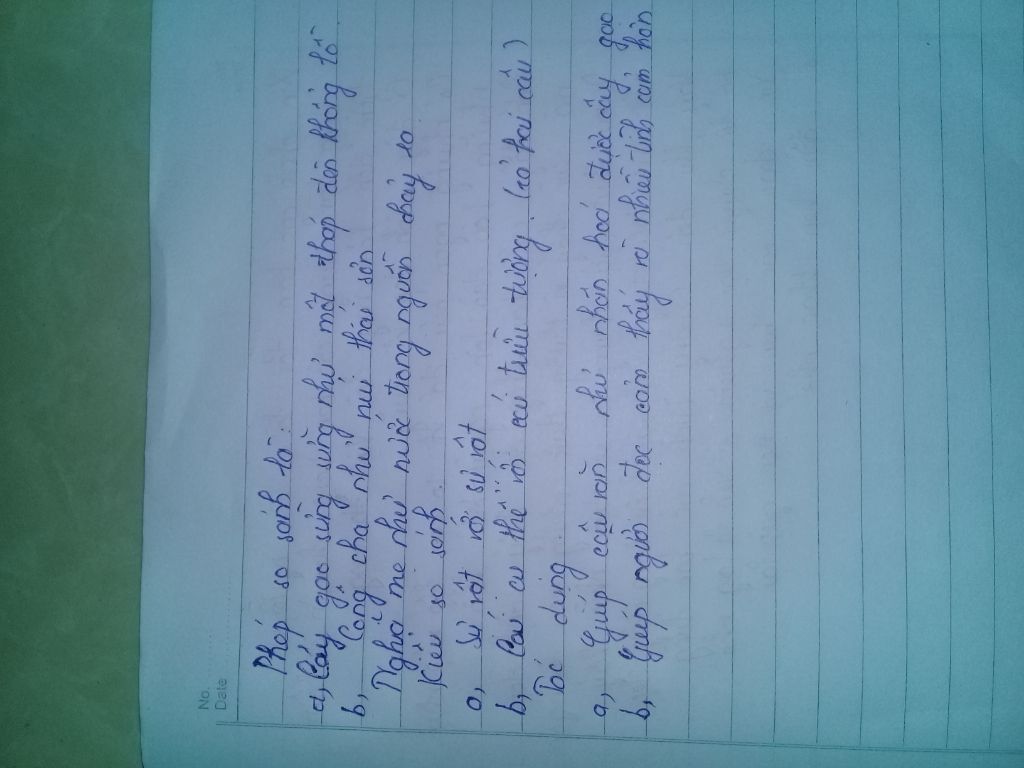 No.
Date
Phép so sánh là:
a, Cây gạo sừng sững như một tháp đèn khổng lồ
b, Công cha như núi thái sơn
Nghĩa mẹ như nước trong nguồn chảy ra
Kiểu so sánh.
a, sự vật với sự vật
b, Cái cụ thể với cái trừu tượng. (cả hai câu)
Tác dụng
a, Giúp câu văn như nhân hoá được cây gạo
b, Giúp người đọc cảm thấy rõ nhiều tình cảm hơn